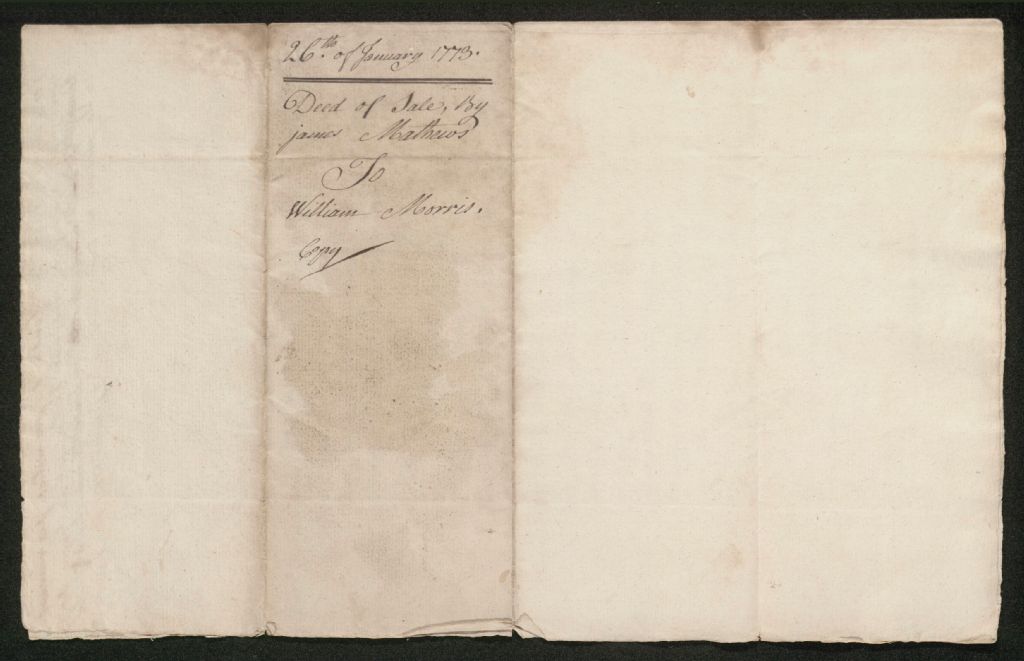 26.th of January 1773.
Deed of Sale, By
james Mathews
To
William Morris.
Copy